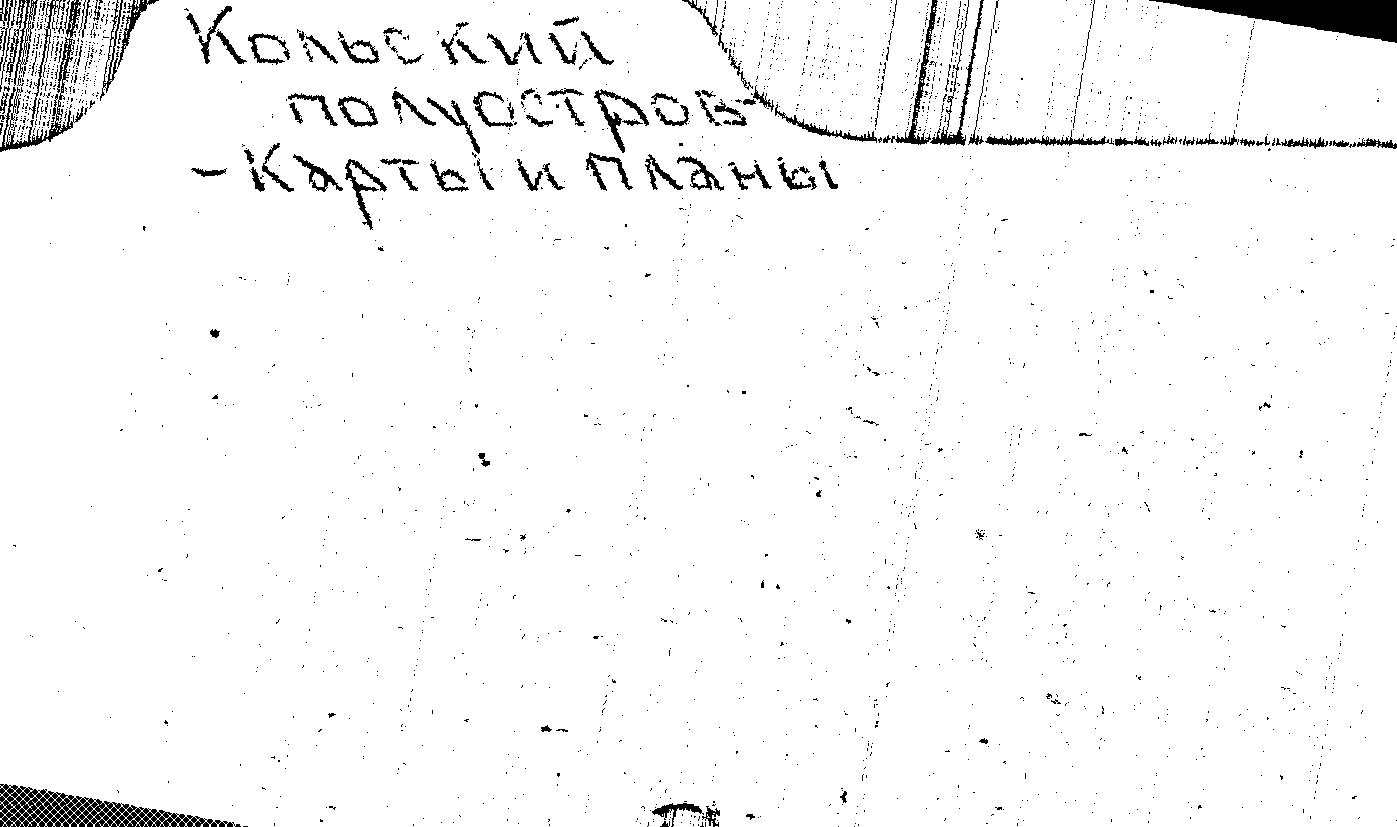 Кольский
полуостров-
-Карты и планы